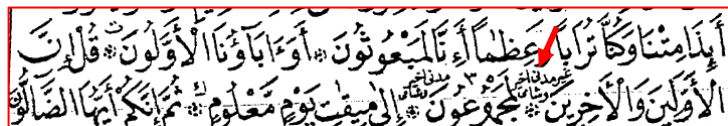 أَئِذَا مِتْنَا وَكُنَّا تُرَابًا وَعِظَٰمًا أَءِنَّا لَمَبْعُوثُونَ ۞ أَوَءَابَآؤُنَا الْأَوَّلُونَ ۞ قُلْ إِنَّ
الْأَوَّلِينَ وَالْأَخِرِينَ ۞ لَمَجْمُوعُونَ ۞ إِلَىٰ مِيقَٰتِ يَوْمٍ مَّعْلُومٍ ۞ ثُمَّ إِنَّكُمْ أَيُّهَا الضَّآلُّونَ